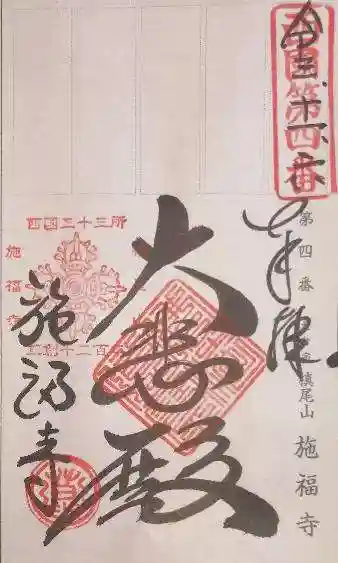 西国第四番
奉拝
第四番
槇尾山 施福寺
大悲殿
西国三十三所
施福寺
施福寺